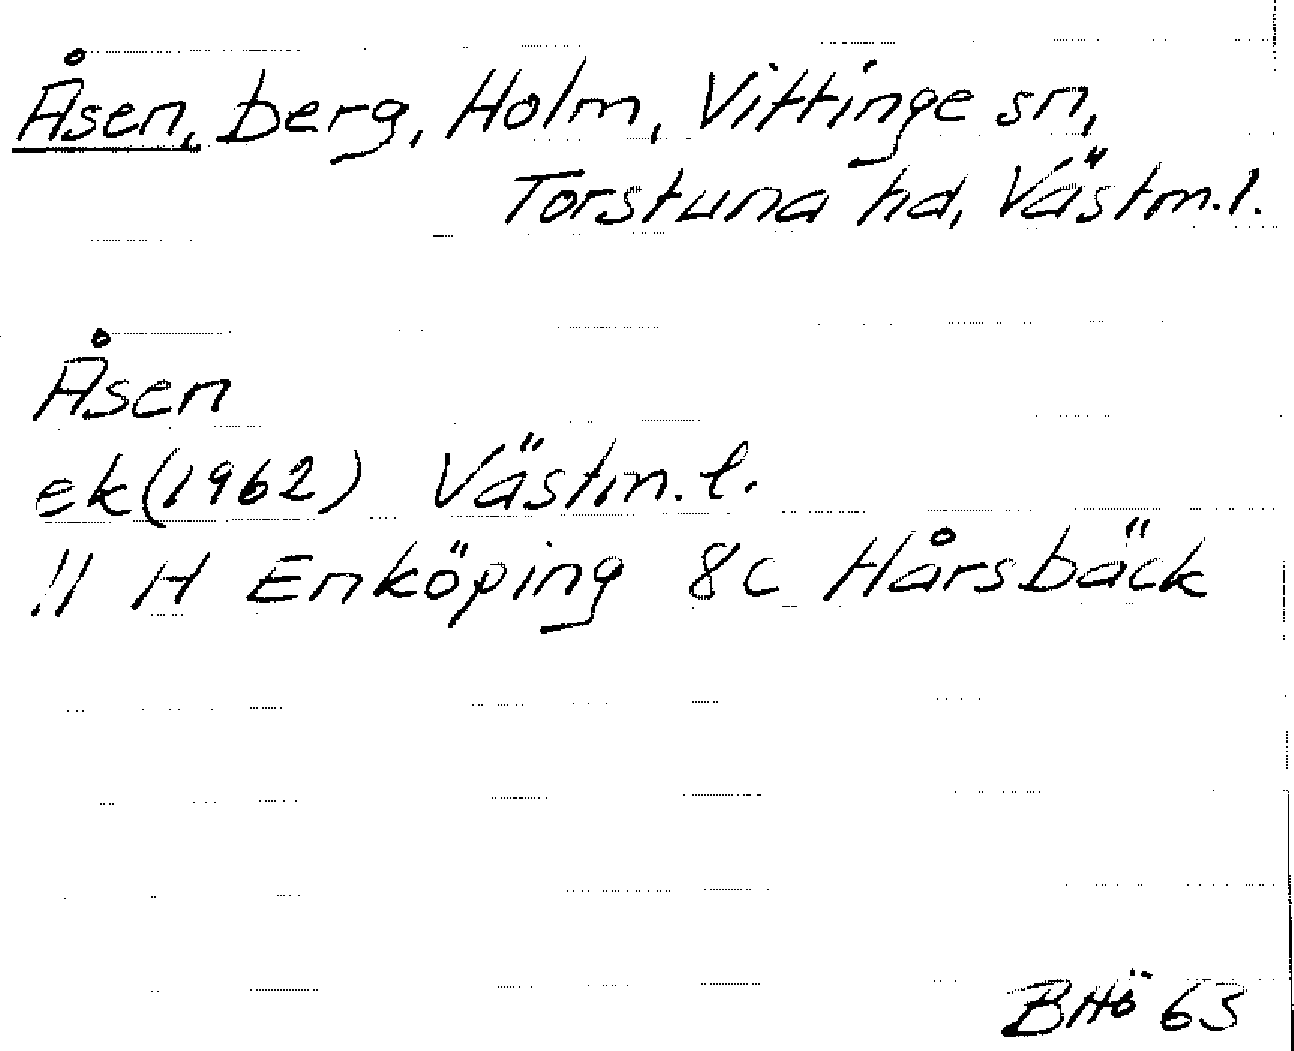 Åsen, berg, Holm, Vittinge sn,
Torstuna hd, Västm.l.
Åsen
ek(1962) Västm.l.
!! H Enköping 8c Hårsbäck
BHö 63